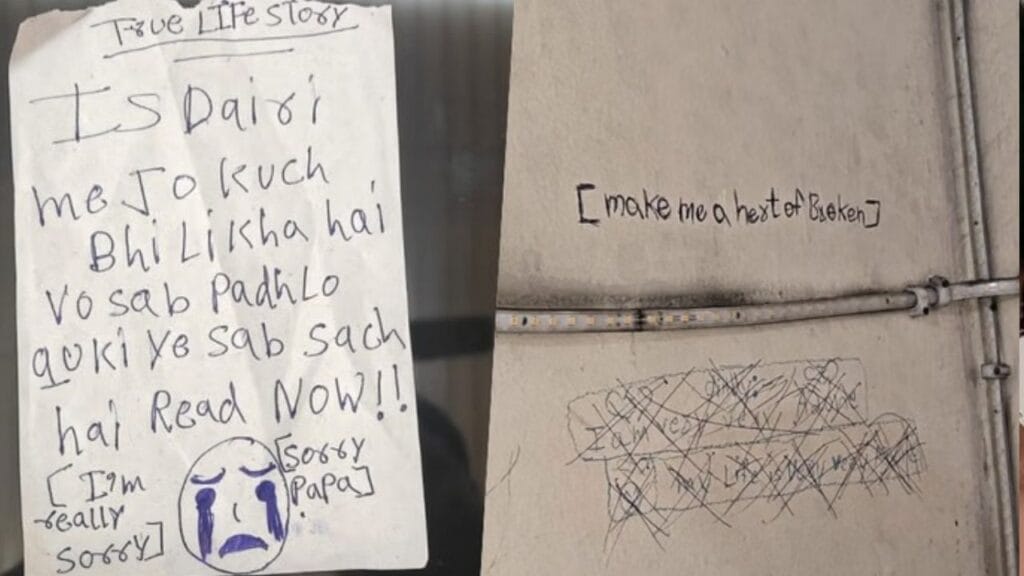 True LIFE STORY
Is Dairi
me Jo kuch
Bhi Likha hai
Vo sab Padh Lo
quki ye sab sach
hai Read NOW!!
[I'm
really
sorry]
[sorry
Papa]
[make me a hert of Broken]
I am
Life is very very